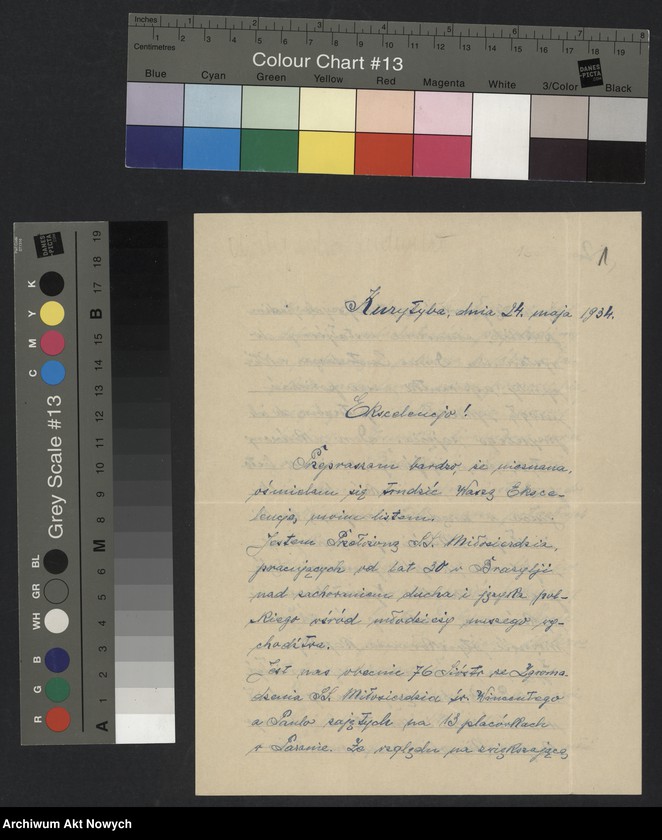 Inches 1 2 3 4 5 6 7 8
1 2 3 4 5 6 7 8 9 10 11 12 13 14 15 16 17 18 19
Centimetres
Colour Chart #13
DANES-PICTA
Blue Cyan Green Yellow Red Magenta White 3/Color Black
Grey Scale #13
DANES-PICTA
C M Y K
R G B WH GR BL
A 1 2 3 4 5 6 M 8 9 10 11 12 13 14 15 B 17 18 19
1
Kurytyba, dnia 24. maja 1934.
Ekscelencjo!
Przepraszam bardzo, że nieznana,
ośmielam się trudzić Waszą Eksce-
lencję moim listem.
Jestem Przełożoną SS. Miłosierdzia,
pracujących od lat 30 w Brazylji
nad zachowaniem ducha i języka pol-
skiego wśród młodzieży naszego wy-
chodźtwa.
Jest nas obecnie 76 Sióstr ze Zgroma-
dzenia SS. Miłosierdzia św. Wincentego
a Paulo zajętych na 13 placówkach
w Paranie. Ze względu na zwiększającą
Archiwum Akt Nowych